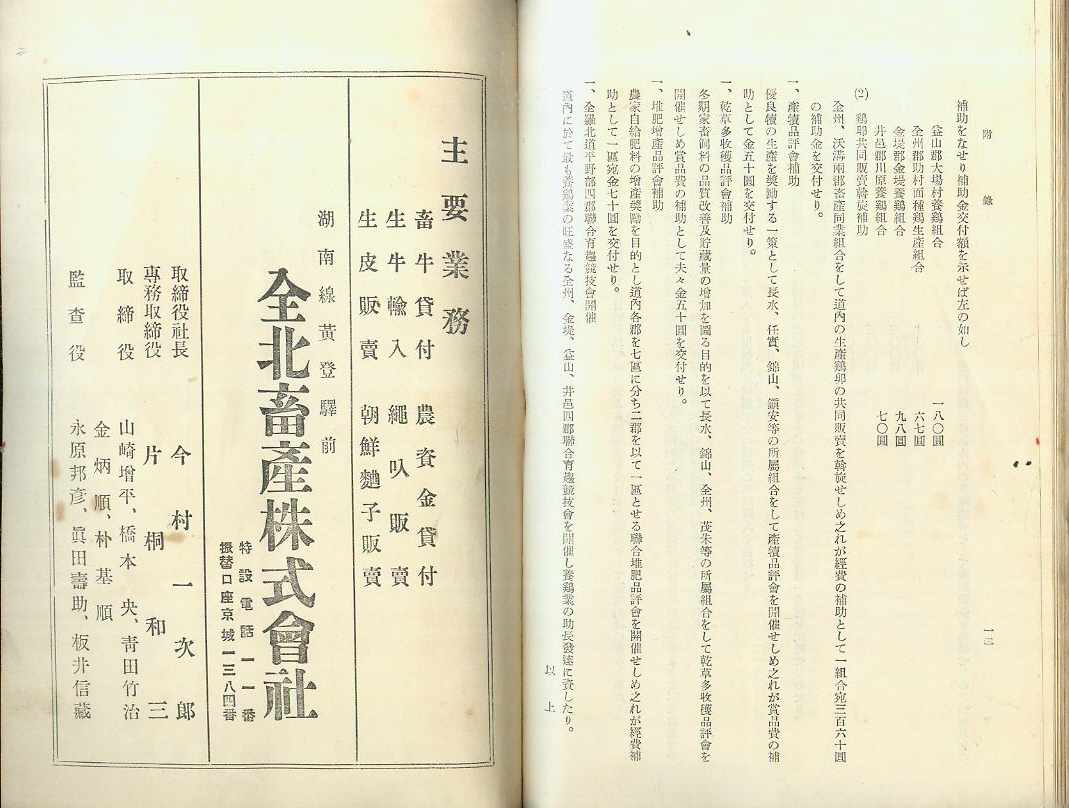 附錄
一二
補助をなせり補助金交付額を示せば左の如し
益山郡大場村養鷄組合 一八〇圓
全州郡助村面種鷄生産組合 六七圓
金堤郡金堤養鷄組合 九八圓
井邑郡川原養鷄組合 七〇圓
(2) 鷄卵共同販賣斡旋補助
全州、沃溝兩郡畜產同業組合をして道內の生產鷄卵の共同販賣を斡旋せしめ之れが經費の補助として一組合宛三百六十圓
の補助金を交付せり。
一、產犢品評會補助
優良犢の生產を奬勵する一策として長水、任實、錦山、鎭安等の所屬組合をして產犢品評會を開催せしめ之れが賞品費の補
助として金五十圓を交付せり。
一、乾草多收穫品評會補助
冬期家畜飼料の品質改善及貯藏量の增加を圖る目的を以て長水、錦山、全州、茂朱等の所屬組合をして乾草多收穫品評會を
開催せしめ賞品費の補助として夫々金五十圓を交付せり。
一、堆肥增產品評會補助
農家自給肥料の增產奬勵を目的とし道內各郡を七區に分ち二郡を以て一區とせる聯合堆肥品評會を開催せしめ之れが經費補
助として一區宛金七十圓を交付せり。
一、全羅北道平野部四郡聯合育雛競技會開催
道內に於て最も養鷄業の旺盛なる全州、金堤、益山、井邑四郡聯合育雛競技會を開催し養鷄業の助長發達に資したり。
以上
主要業務
畜牛貸付 農資金貸付
生牛輸入 繩叺販賣
生皮販賣 朝鮮麯子販賣
湖南線黃登驛前
全北畜產株式會社
特設電話一一番
振替口座京城一三八四番
取締役社長 今村一次郎
專務取締役 片桐和三
取締役 山崎增平、橋本央、靑田竹治
金炳順、朴基順
監查役 永原邦彥、眞田壽助、板井信藏